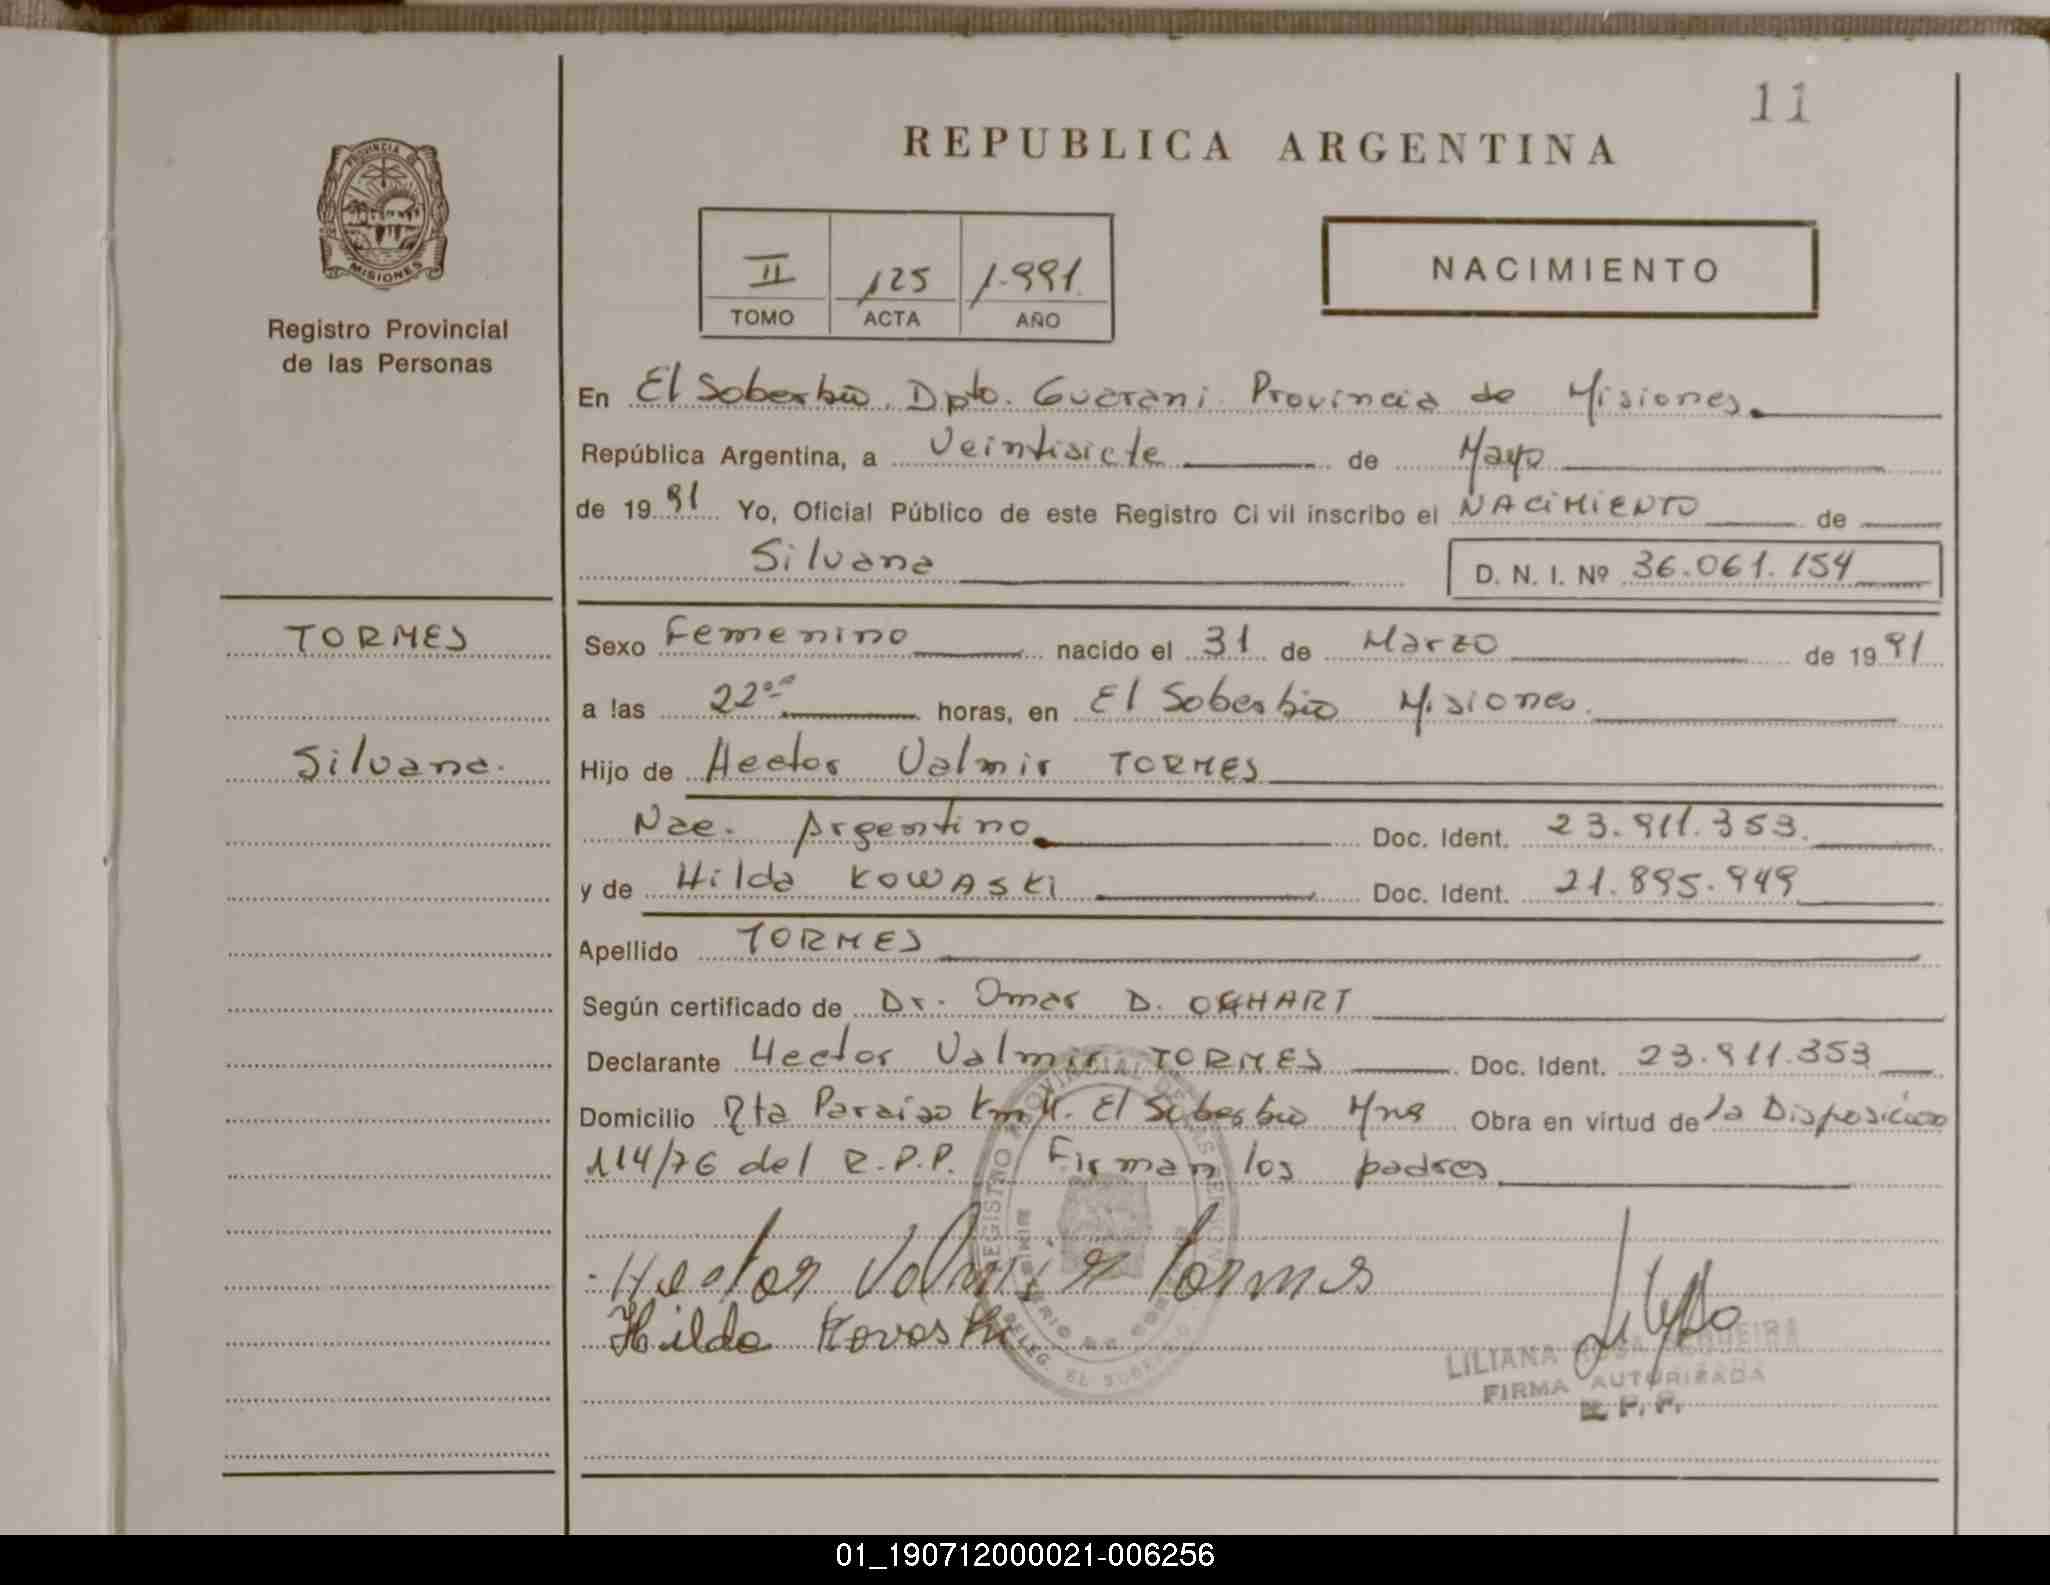 11
PROVINCIA DE
MISIONES
Registro Provincial
de las Personas
REPUBLICA ARGENTINA
II 125 1.991.
TOMO ACTA AÑO
NACIMIENTO
En El Soberbio. Dpto. Guarani. Provincia de Misiones.
República Argentina, a Veintisiete de Mayo
de 1991 Yo, Oficial Público de este Registro Civil inscribo el NACIMIENTO de
Silvana D. N. I. Nº 36.061.154
TORMES
Silvana.
Sexo Femenino nacido el 31 de Marzo de 1991
a las 22°° horas, en El Soberbio Misiones.
Hijo de Hector Valmir TORMES
Nac. Argentino. Doc. Ident. 23.911.353.
y de Hilda KOWASKI Doc. Ident. 21.895.949
Apellido TORMES
Según certificado de Dr. Omar D.
Declarante Hector Valmir TORMES Doc. Ident. 23.911.353
Domicilio Rta Paraiso Km El Soberbio Mnes Obra en virtud de la Disposición
114/76 del R.P.P. Firman los padres
Hector Valmir Tormes
Hilda Kovaski
REGISTRO PROVINCIAL DE LAS PERSONAS
DELEG. EL SOBERBIO
LILIANA ROSA
FIRMA AUTORIZADA
R. P. P.
01_190712000021-006256